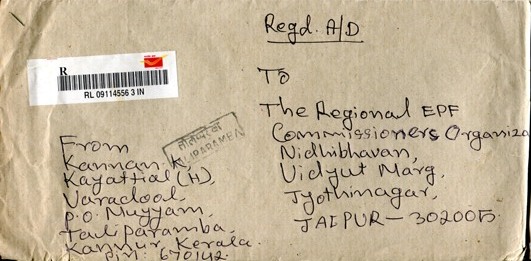 Regd. A/D
R
RL 09114556 3 IN
To
The Regional EPF
Commissioners Organiza
Nidhibhavan,
Vidyut Marg,
Jyothinagar,
JAIPUR - 302005
From
Kannan. K
Kayattial (H),
Varadool,
P.O. Muyyam,
Taliparamba,
Kannur, Kerala.
Pin: 670142